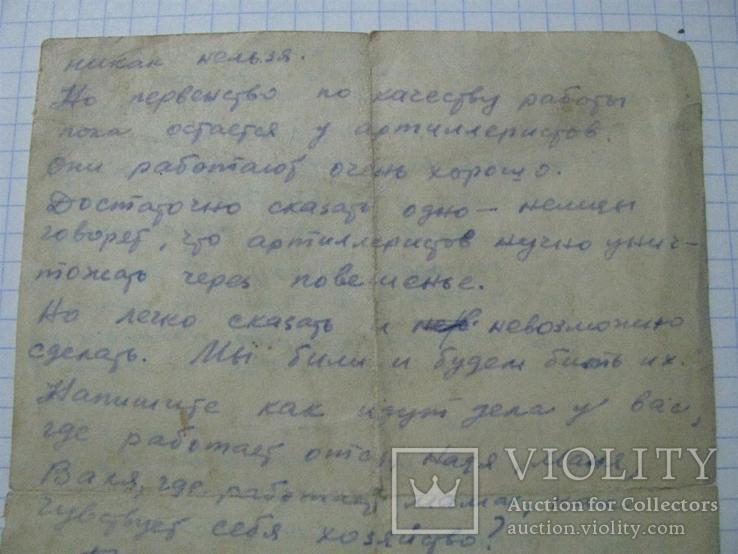 никак нельзя.
Но первенство по качеству работы
пока остается у артиллеристов.
Они работают очень хорошо.
Достаточно сказать одно — немцы
говорят, что артиллеристов нужно унич-
тожать через повешенье.
Но легко сказать и невозможно
сделать. Мы били и будем бить их.
Напишите как идут дела у вас,
где работает отец, Надя,
Валя, где работает мама, как
чувствует себя хозяйство?
VIOLITY
Auction for Collectors
auction.violity.com